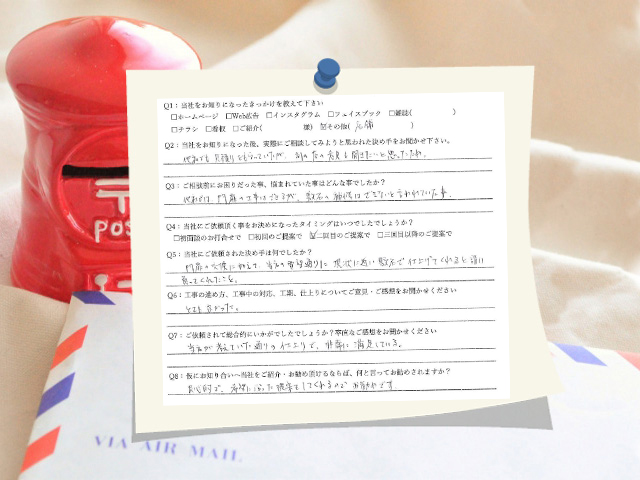 Q1：当社をお知りになったきっかけを教えて下さい
□ホームページ □Web広告 □インスタグラム □フェイスブック □雑誌( )
□チラシ □看板 □ご紹介( 様) ☑その他( 店舗 )
Q2：当社をお知りになった後、実際にご相談してみようと思われた決め手をお聞かせ下さい。
他社でも見積りをもらっていたが、別の方の意見も聞きたいと思ったため。
Q3：ご相談前にお困りだった事、悩まれていた事はどんな事でしたか？
他社では、門扉の工事はできるが、敷石の補修はできないと言われていた事。
Q4：当社にご依頼頂く事をお決めになったタイミングはいつでしたでしょうか？
□初面談のお打合せで □初回のご提案で ☑二回目のご提案で □三回目以降のご提案で
Q5：当社にご依頼された決め手は何でしたか？
門扉の交換に加えて、当方の希望通りに現状に近い敷石で仕上げてくれると請け
負ってくれたこと。
Q6：工事の進め方、工事中の対応、工期、仕上りについてご意見・ご感想をお聞かせください
とても良かった。
Q7：ご依頼されて総合的にいかがでしたでしょうか？率直なご感想をお聞かせください
当方が考えていた通りの仕上りで、非常に満足している。
Q8：仮にお知り合いへ当社をご紹介・お勧め頂けるならば、何と言ってお勧めされますか？
良心的で、希望に沿った提案をしてくれるのでお勧めです。
POS
VIA AIR MAIL